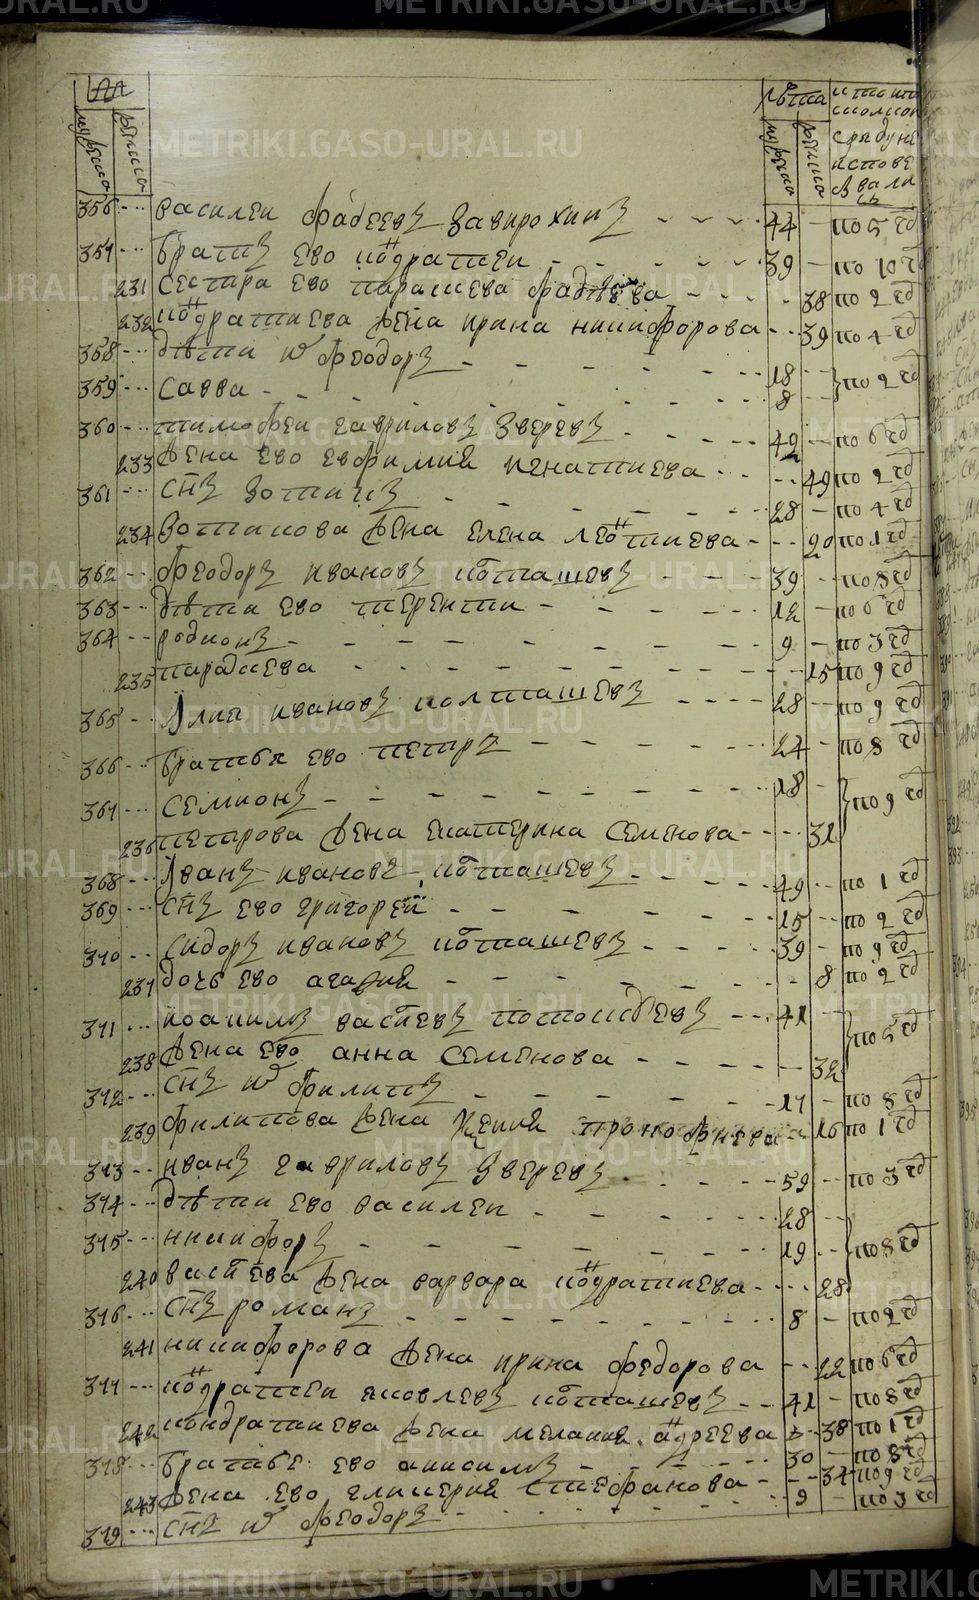 METRIKI.GASO-URAL.RU
лѣта
мужеска женска
мужеска женска
356 --- василеи фадеевъ завирохинъ 44 - по 5 год
357 --- братъ ево кондратеи 39 - по 10 год
231 сестра ево парасцева фадѣева 38 по 2 год
232 кондратиева жена ирина никифорова 39 по 4 год
358 --- дѣти их феодоръ 18
359 --- савва 8 по 2 год
360 --- тимофеи гавриловъ зверевъ 49 - по 6 год
233 жена ево евфимия игнатиева 49 по 2 год
361 --- снъ зотикъ 28 - по 4 год
234 зотикова жена елена леонтиева 20 по 1 год
362 --- феодоръ ивановъ колташевъ 39 - по 8 год
363 --- дѣти ево терентии 12 - по 6 год
364 --- родионъ 9 - по 3 год
235 парасцева 15 по 9 год
365 --- ивановъ колташевъ 28 - по 9 год
366 --- братья ево петръ 24 - по 8 год
367 --- семионъ 18 - по 9 год
236 петрова жена екатерина семенова 31
368 --- иванъ ивановъ колташевъ 49 - по 1 год
369 --- снъ ево григореи 15 - по 2 год
370 --- сидоръ ивановъ колташевъ 39 - по 9 год
237 дочь ево агафия 8 по 2 год
371 --- иоакимъ васлевъ потоскуевъ 41 - по 5 год
238 жена ево анна семенова 32
372 --- снъ их филипъ 17 - по 8 год
239 филипова жена ксения прокофиева 16 по 1 год
373 --- иванъ гавриловъ зверевъ 59 - по 3 год
374 --- дѣти ево василеи 28
375 --- никифоръ 19 - по 8 год
240 васлева жена варвара кондратиева 28
376 --- снъ романъ 8 - по 2 год
241 никифорова жена ирина федорова 22 по 6 год
377 --- кондратеи яковлевъ колташевъ 41 - по 8 год
242 кондратиева жена мелания андреева 38 по 1 год
378 --- братье ево анисимъ 30 - по 8 год
243 жена ево гликерия стефанова 34 по 9 год
379 --- снъ их феодоръ 9 - по 3 год